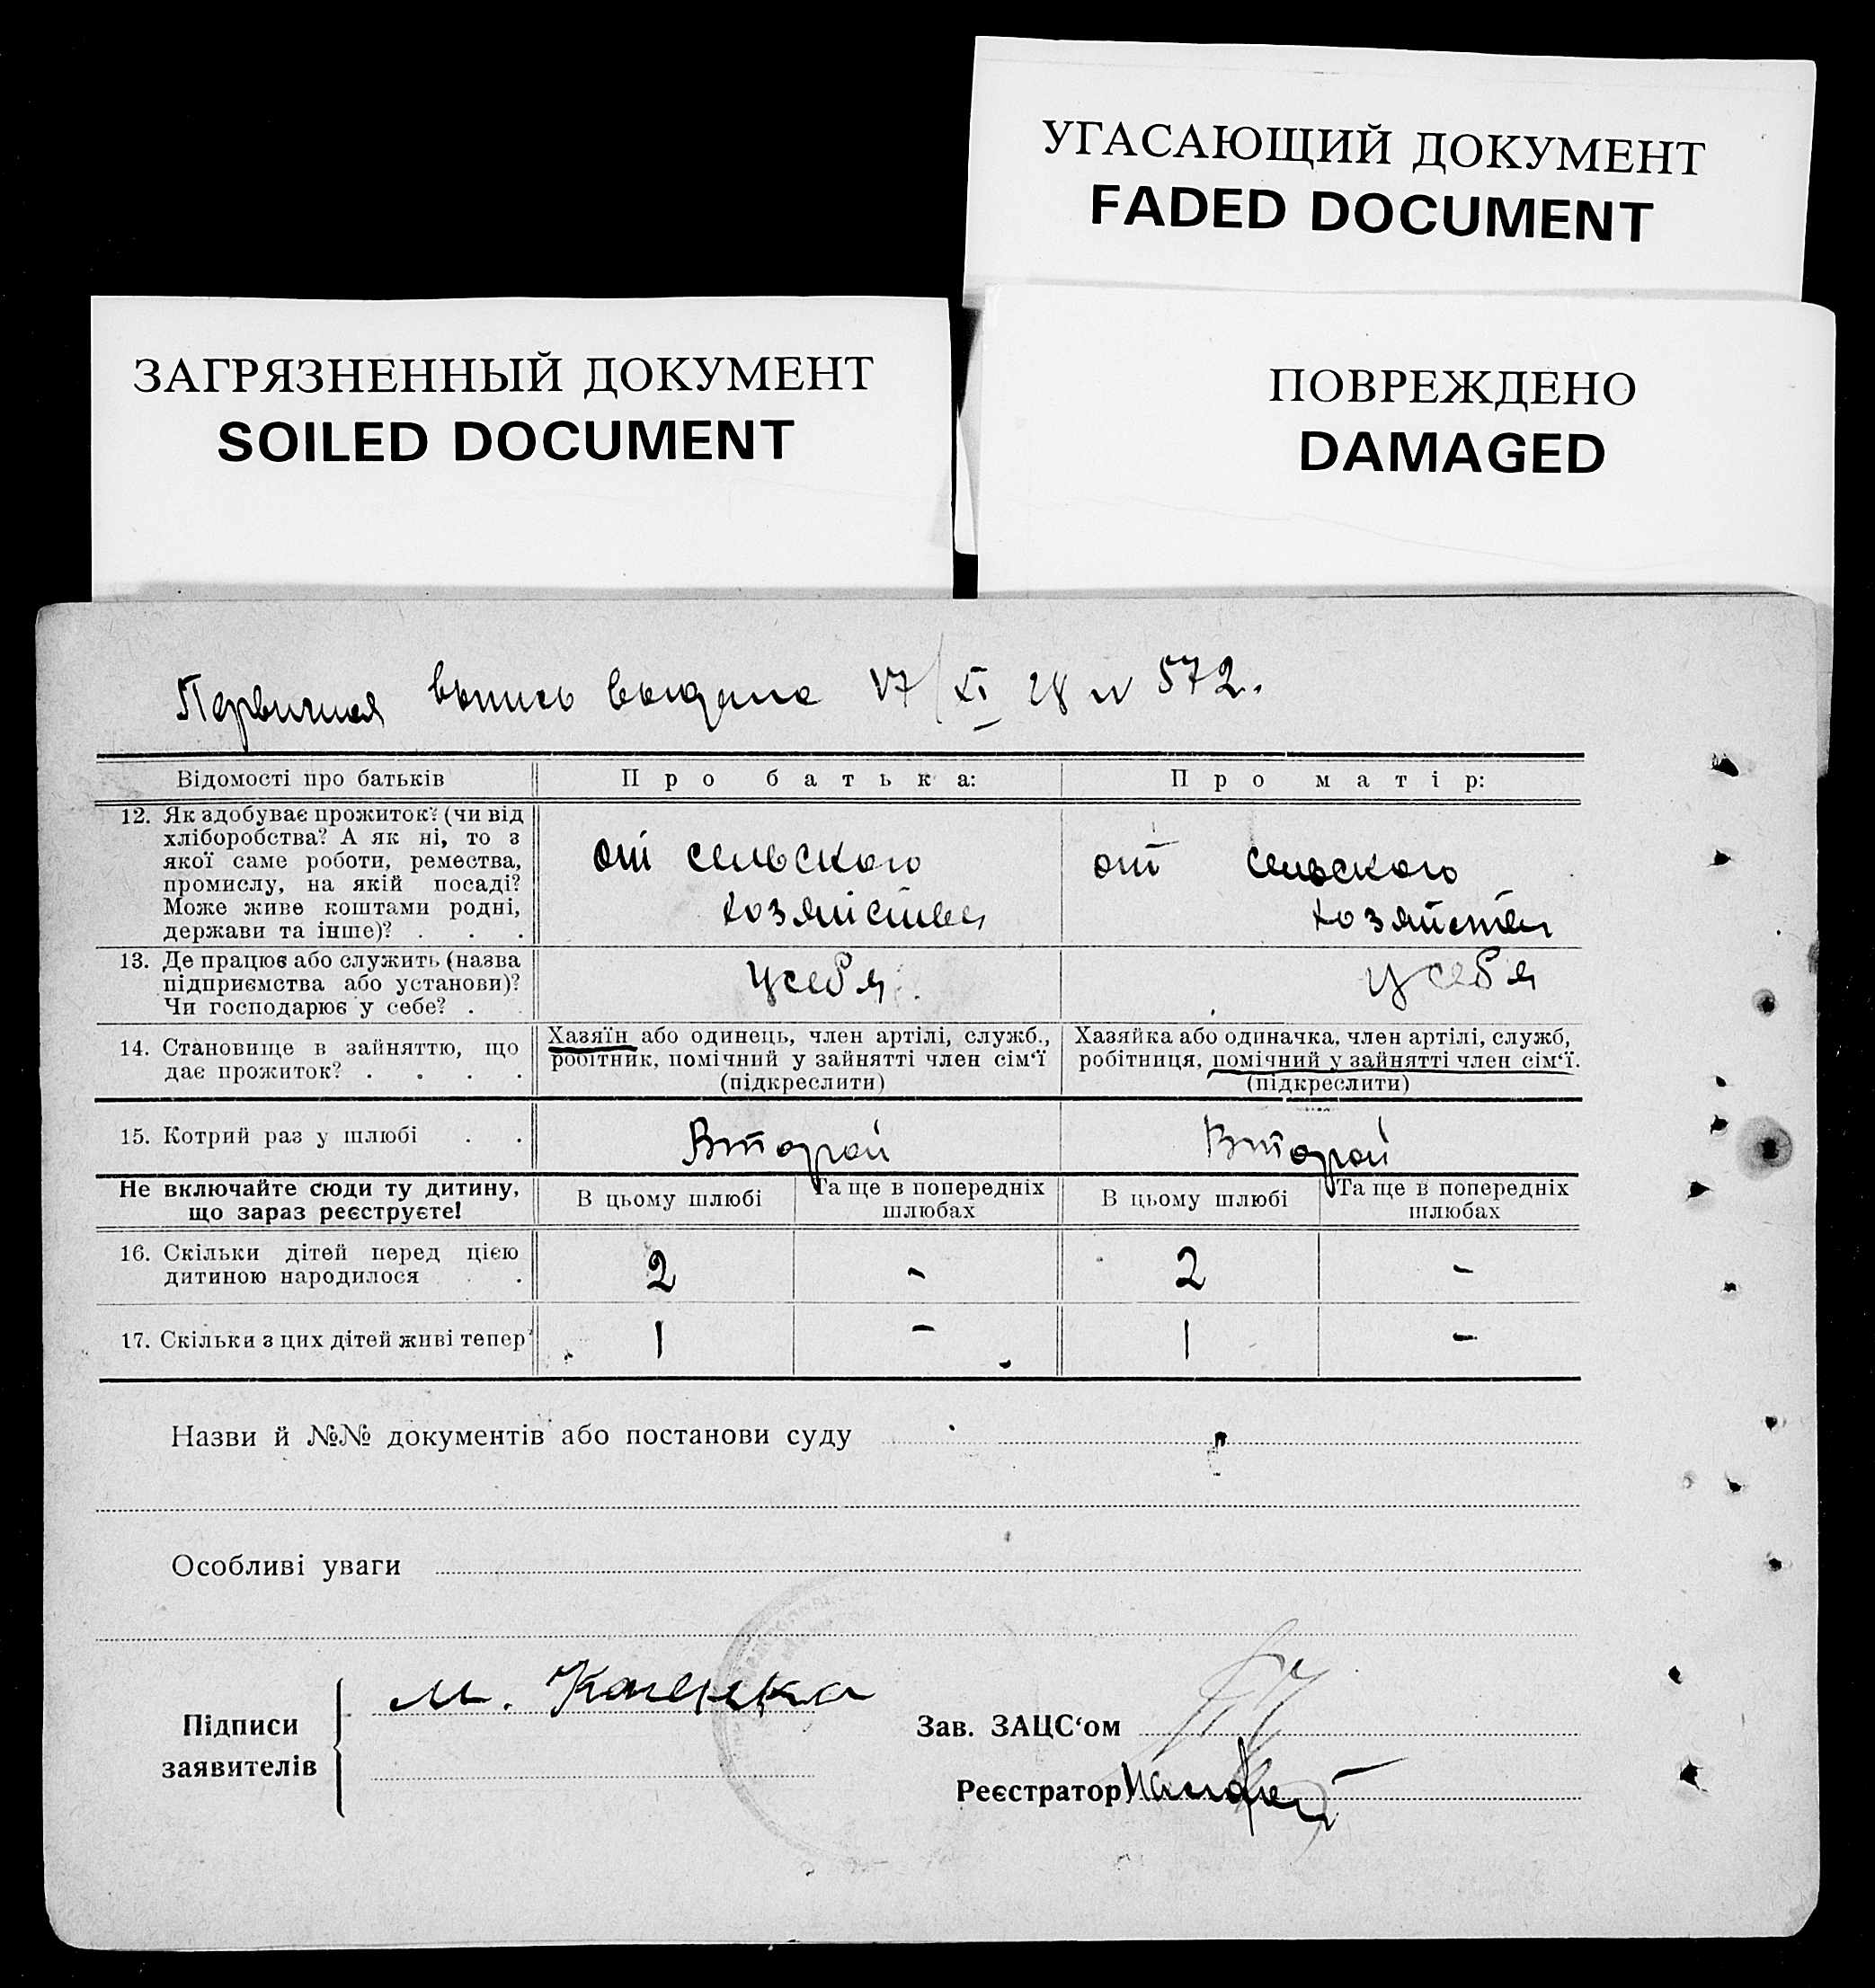 УГАСАЮЩИЙ ДОКУМЕНТ
FADED DOCUMENT
ЗАГРЯЗНЕННЫЙ ДОКУМЕНТ
SOILED DOCUMENT
ПОВРЕЖДЕНО
DAMAGED
Первичная выпись выдана 17/XI 28 N 572.
Відомості про батьків
Про батька:
Про матір:
12. Як здобуває прожиток? (чи від
хліборобства? А як ні, то з
якої саме роботи, ремества,
промислу, на якій посаді?
Може живе коштами родні,
держави та інше)? . . .
от сельского
хозяйства
от сельского
хозяйства
13. Де працює або служить (назва
підприємства або установи)?
Чи господарює у себе? . .
у себя
у себя
14. Становище в зайняттю, що
дає прожиток? . . . .
Хазяїн або одинець, член артілі, служб.,
робітник, помічний у зайнятті член сім'ї
(підкреслити)
Хазяйка або одиначка, член артілі, служб,
робітниця, помічний у зайнятті член сім'ї.
(підкреслити)
15. Котрий раз у шлюбі . .
Второй
Второй
Не включайте сюди ту дитину,
що зараз реєструєте!
В цьому шлюбі
Та ще в попередніх
шлюбах
В цьому шлюбі
Та ще в попередніх
шлюбах
16. Скільки дітей перед цією
дитиною народилося . .
2
-
2
-
17. Скільки з цих дітей живі тепер
1
-
1
-
Назви й №№ документів або постанови суду
Особливі уваги
Підписи
заявителів
М.
Зав. ЗАЦС'ом
Реєстратор